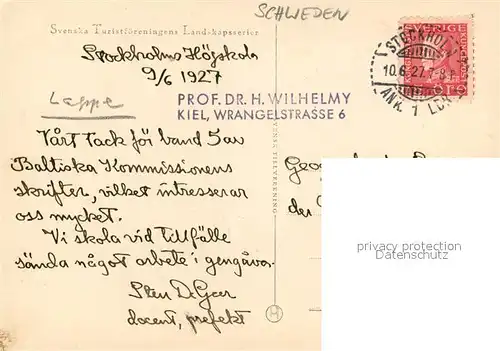 SCHWEDEN
Svenska Turistföreningens Landskapsserier
Stockholms Högskola
9/6 1927
Lappe
PROF. DR. H. WILHELMY
KIEL, WRANGELSTRASSE 6
SVERIGE
STOCKHOLM
10.6.27.7-8
ANK. 1
Vårt tack för band 5 av
Baltiska Kommissionens
skrifter, vilket intresserar
oss mycket.
Vi skola vid tillfälle
sända något arbete i gengåva.
Sten De Geer
docent, prefekt
SVENSK TILLVERKNING
der
privacy protection
Datenschutz